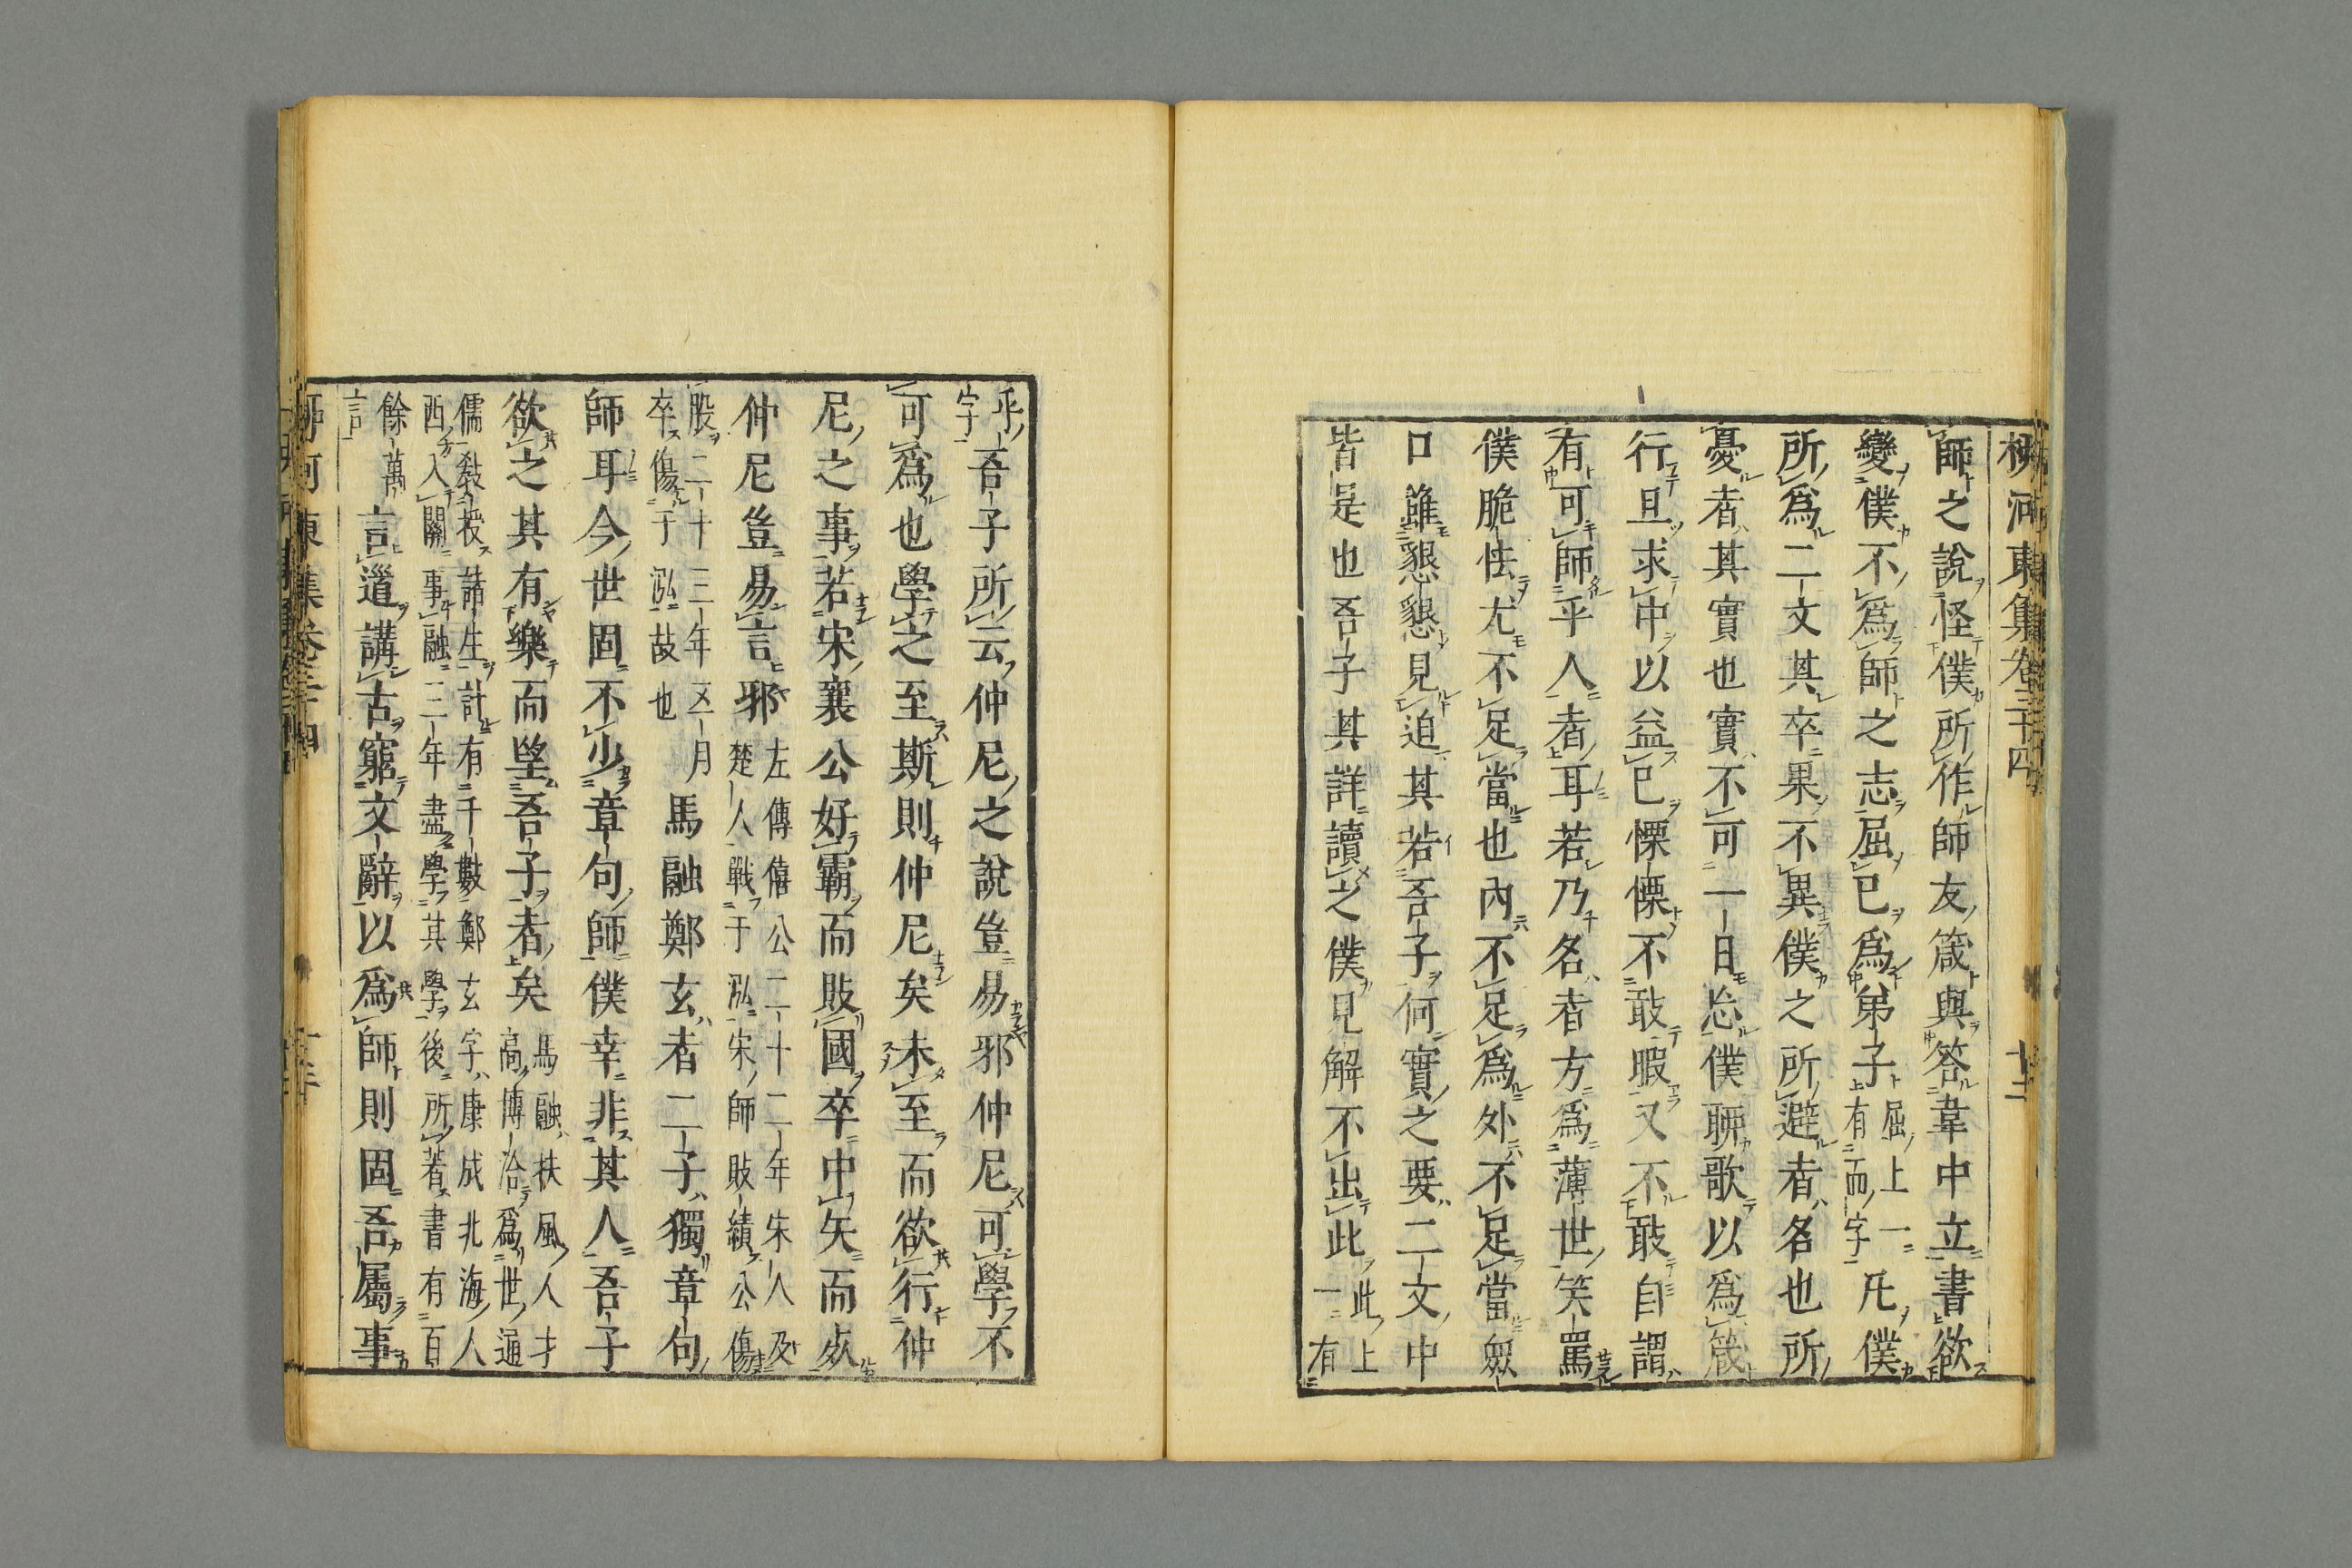 柳河東集卷三十四　十二
師之說怪僕所作師友箴與答韋中立書欲
變僕不爲師之志屈已爲弟子屈上一有而字凡僕
所爲二文其卒果不異僕之所避者名也所
憂者其實也實不可一日忘僕聊歌以爲箴
行且求中以益已慄慄不敢暇又不敢自謂
有可師乎人者耳若乃名者方爲薄世笑罵
僕脆怯尤不足當也內不足爲外不足當衆
口雖懇懇見迫其若吾子何實之要二文中
皆是也吾子其詳讀之僕見解不出此此上一有
乎字吾子所云仲尼之說豈易邪仲尼可學不
可爲也學之至斯則仲尼矣未至而欲行仲
尼之事若宋襄公好霸而敗國卒中矢而死
仲尼豈易言邪左傳僖公二十二年宋人及楚人戰于泓宋師敗績公傷
股二十三年五月卒傷于泓故也馬融鄭玄者二子獨章句
師耳今世固不少章句師僕幸非其人吾子
欲之其有樂而望吾子者矣馬融扶風人才高博洽爲世通
儒教授諸生計有千數鄭玄字康成北海人西入關事融三年盡學其學後所著書有百
餘萬言言道講古窮文辭以爲師則固吾屬事
柳河東集卷三十四